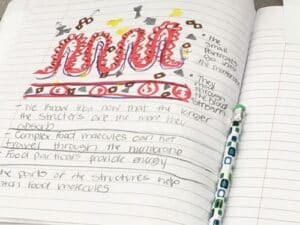 • The
Small
go
the
• They
through
the blood
stream
- We know that now that the longer
the structors are the more they
absorb
- Complex food molecules can not
travel through the membrane
- Food particals provide energy
the parts of the structures help
food molecules